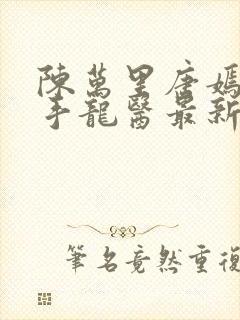 陳萬里唐嫣
手龍醫最新
筆名竟然重復